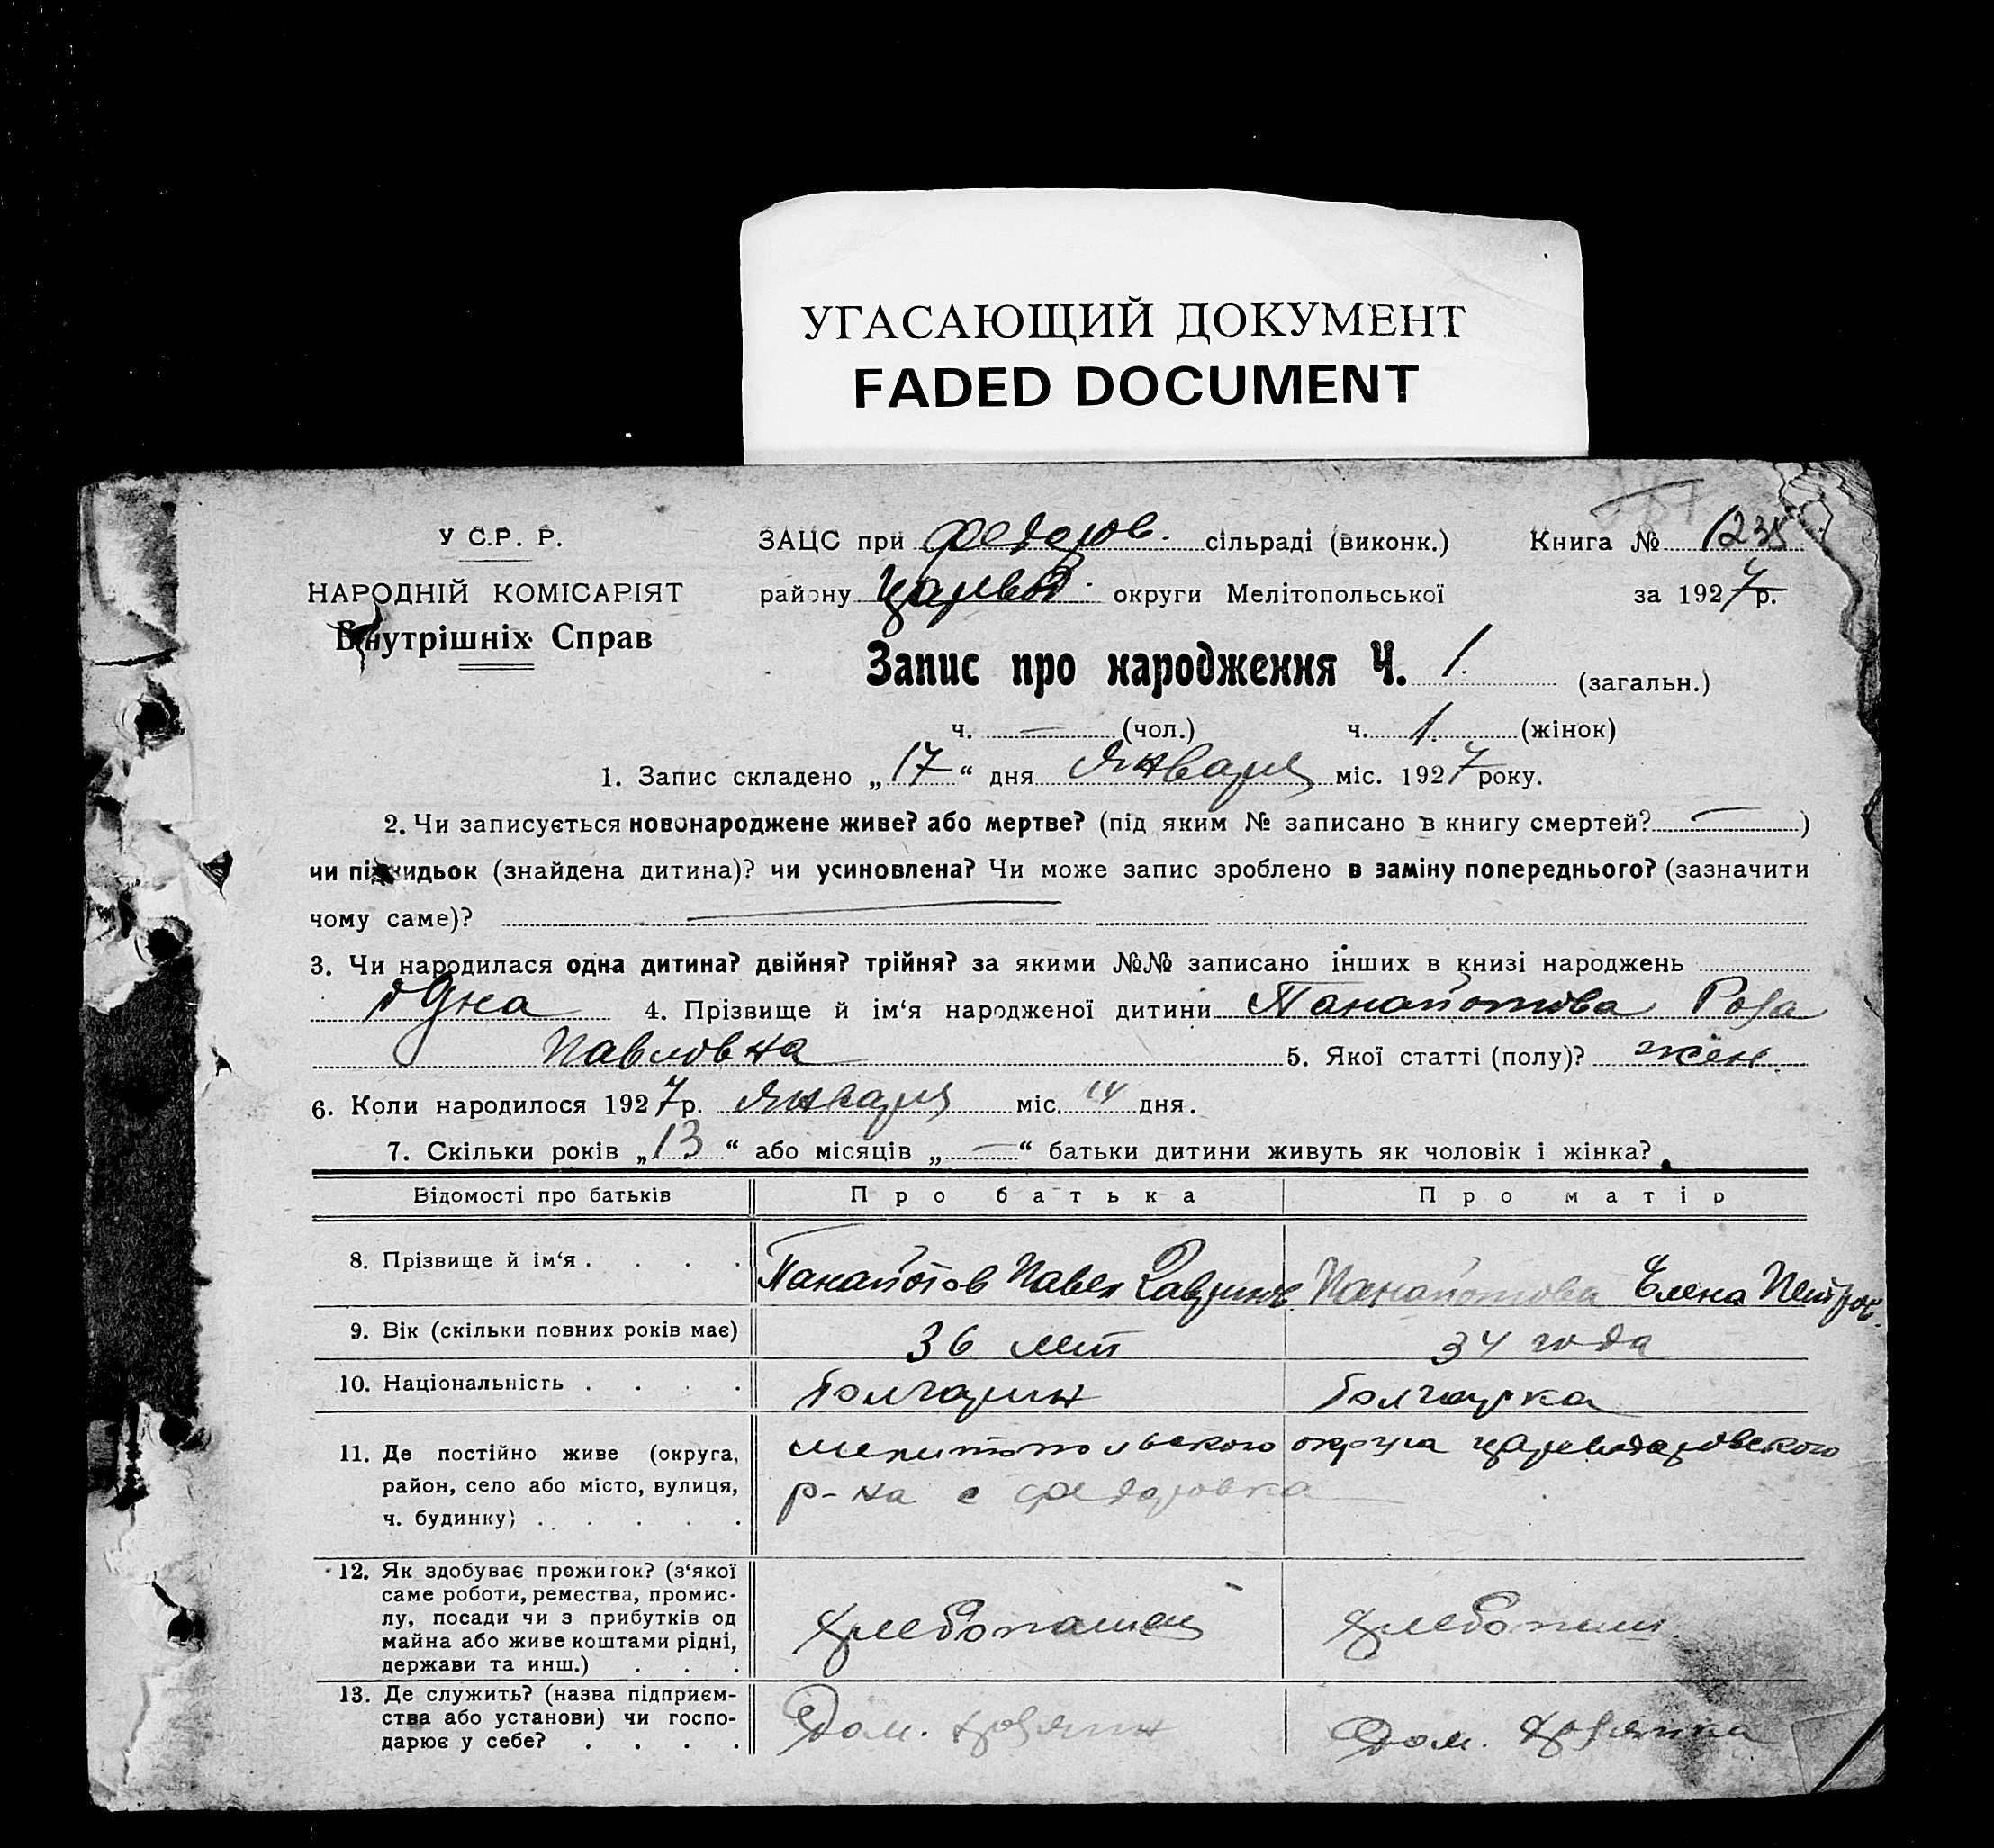 УГАСАЮЩИЙ ДОКУМЕНТ
FADED DOCUMENT
У С.Р. Р.
НАРОДНІЙ КОМІСАРІЯТ
Внутрішніх Справ
ЗАЦС при Федоров. сільраді (виконк.) Книга №
району Царьвод. округи Мелітопольської за 1927 р.
Запис про народження Ч. 1. (загальн.)
ч. — (чол.) ч. 1. (жінок)
1. Запис складено „17“ дня Января міс. 1927 року.
2. Чи записується новонароджене живе? або мертве? (під яким № записано в книгу смертей? —)
чи підкидьок (знайдена дитина)? чи усиновлена? Чи може запис зроблено в заміну попереднього? (зазначити
чому саме)? —
3. Чи народилася одна дитина? двійня? трійня? за якими №№ записано інших в книзі народжень
одна 4. Прізвище й ім‘я народженої дитини Панайотова Роза
Павловна 5. Якої статті (полу)? жен.
6. Коли народилося 1927 р. Января міс. 14 дня.
7. Скільки років „13“ або місяців „—“ батьки дитини живуть як чоловік і жінка?
Відомості про батьків Про батька Про матір
8. Прізвище й ім‘я . . . . Панайотов Павел Гаврилов. Панайотова Елена Петров.
9. Вік (скільки повних років має) 36 лет 34 года
10. Національність . . . . Болгарин Болгарка
11. Де постійно живе (округа, мелитопольского округа царьводаровского
район, село або місто, вулиця, р-на с Федоровка
ч. будинку) . . . . .
12. Як здобуває прожиток? (з‘якої
саме роботи, ремества, промис-
лу, посади чи з прибутків од Хлебопашец Хлебопаш.
майна або живе коштами рідні,
держави та инш.) . . .
13. Де служить? (назва підприєм-
ства або установи) чи госпо- Дом. хозяин Дом. хозяйка
дарює у себе? . . . .